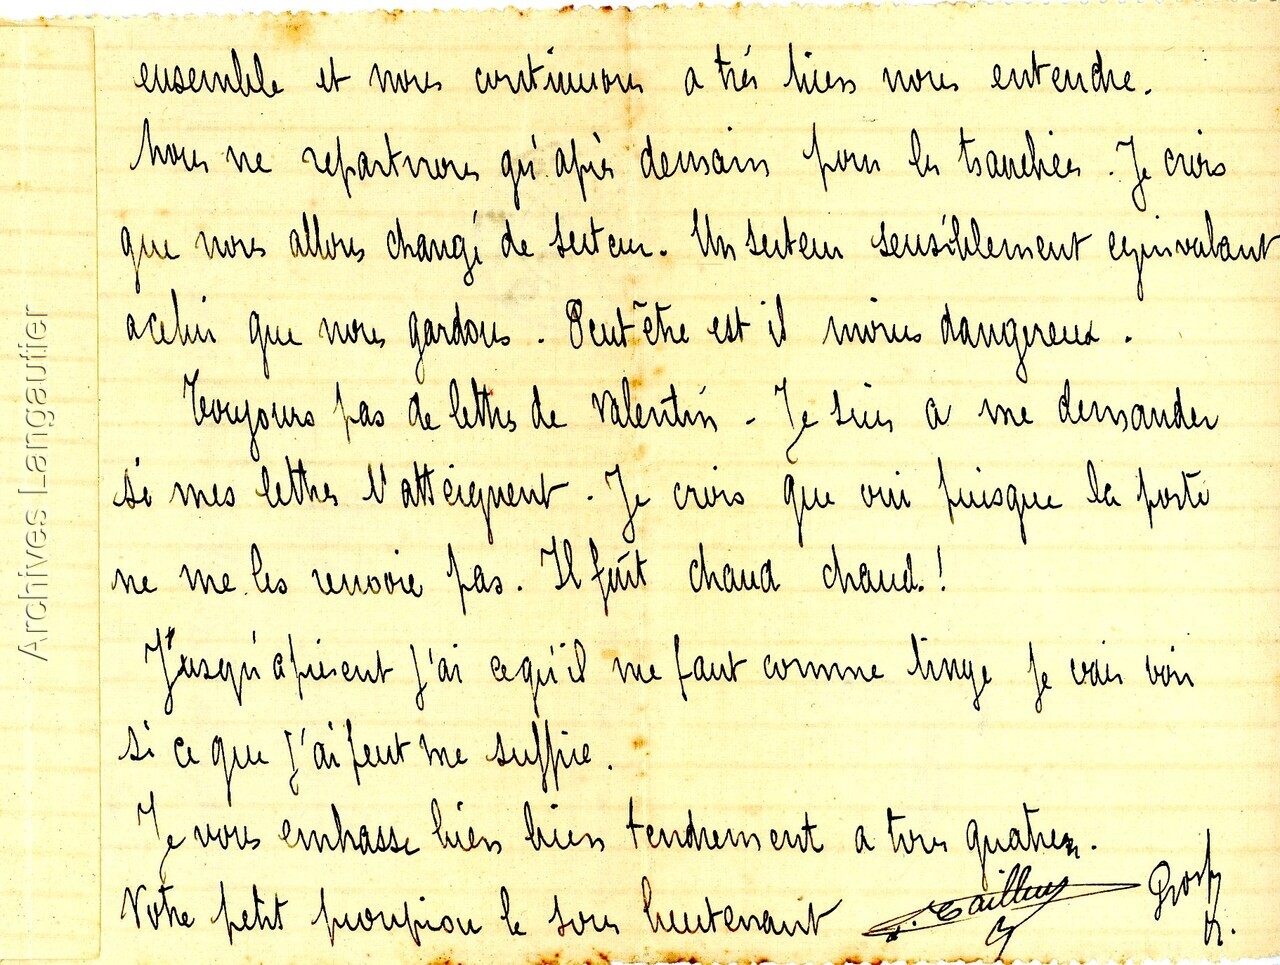 ensemble et nous continuons a très bien nous entendre.
Nous ne repartirons qu'après demain pour les tranchées. Je crois
que nous allons changé de secteur. Un secteur sensiblement equivalant
a celui que nous gardons. Peut-être est il moins dangereux.
Toujours pas de lettres de Valentin - Je suis a me demander
si mes lettres l'atteignent. Je crois que oui puisque la poste
ne me les renvoie pas. Il fait chaud chaud.!
Jusqu'a présent j'ai ce qu'il me faut comme linge je vais voir
si ce que j'ai peut me suffire.
Je vous embrasse bien bien tendrement a tous quatre.
Votre petit pioupiou le sous lieutenant
Archives Langautier